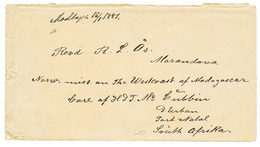 Revd R. L. Aas.
Morandava
Norw. miss on the Westcoast of Madagascar
Care of H D T. Mc Cubbin
D'Urban
Port Natal
South Afrika.